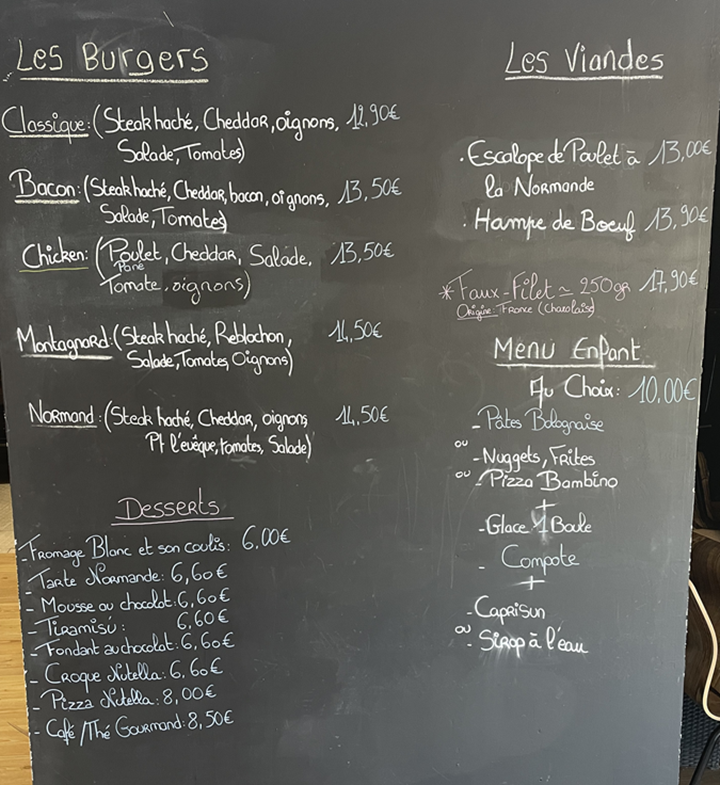 Les Burgers
Classique: (Steak haché, Cheddar, oignons, 12,90€
Salade, Tomates)
Bacon: (Steak haché, Cheddar, bacon, oignons, 13,50€
Salade, Tomates)
Chicken: (Poulet, Cheddar, Salade, 13,50€
Pané
Tomate, oignons)
Montagnard: (Steak haché, Reblochon, 14,50€
Salade, Tomates, Oignons)
Normand: (Steak haché, Cheddar, oignons, 14,50€
Pt l'evêque, tomates, Salade)
Desserts
- Fromage Blanc et son coulis: 6,00€
- Tarte Normande: 6,60€
- Mousse au chocolat: 6,60€
- Tiramisú: 6,60€
- Fondant au chocolat: 6,60€
- Croque Nutella: 6,60€
- Pizza Nutella: 8,00€
- Café/Thé Gourmand: 8,50€
Les Viandes
. Escalope de Poulet à 13,00€
la Normande
. Hampe de Boeuf 13,90€
* Faux-Filet ≃ 250gr 17,90€
Origine: France (Charolaise)
Menu Enfant
Au Choix: 10,00€
- Pâtes Bolognaise
ou - Nuggets, Frites
ou - Pizza Bambino
+
- Glace 1 Boule
- Compote
+
- Caprisun
ou - Sirop à l'eau